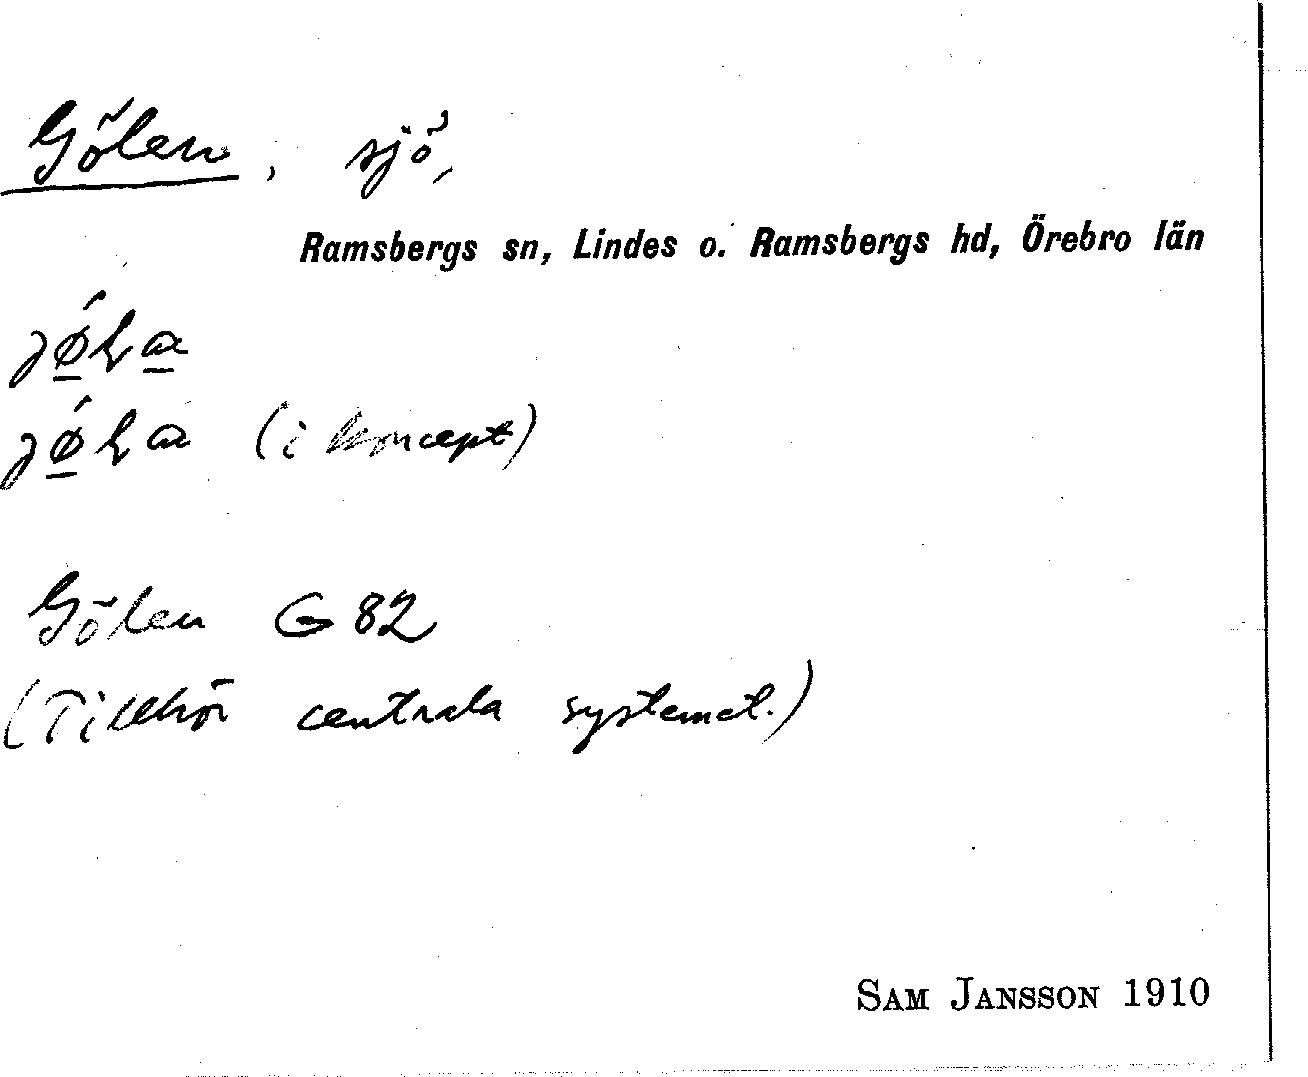 Gölen, sjö,
Ramsbergs sn, Lindes o. Ramsbergs hd, Örebro län
(i koncept)
Gölen G 82
(Tillhör centrala systemet.)
SAM JANSSON 1910